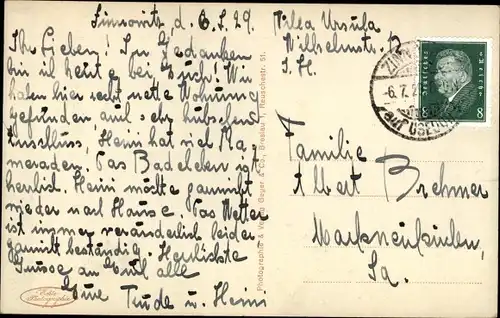 Zinnowitz d. 6.7.29.
Ihr Lieben! In Gedanken
bin ich heute bei Euch! Wir
haben hier recht nette Wohnung
gefunden, auch sehr hübschen
Anschluss, Heini hat viel Ka-
meraden. Das Badeleben ist
herrlich. Heini möchte garnicht
wieder nach Hause. Das Wetter
ist immer veränderlich leider
garnicht beständig. Herzlichste
Grüsse an Euch alle
Eure Trude u. Heini
Villa Ursula
Wilhelmstr. 12
Familie
Albert Brehmer
Markneukirchen
Sa.
Photographie & Verlag Geyer & Co., Breslau I, Reuschestr. 51.
Echte
Photographie
Deutsches Reich
8
-6.7.29
USEDOM